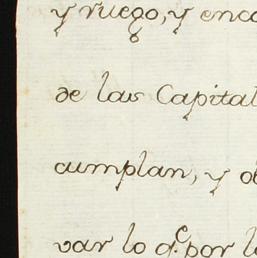 y ruego, y enca
de las Capital
cumplan, y ob
var lo q.e por l